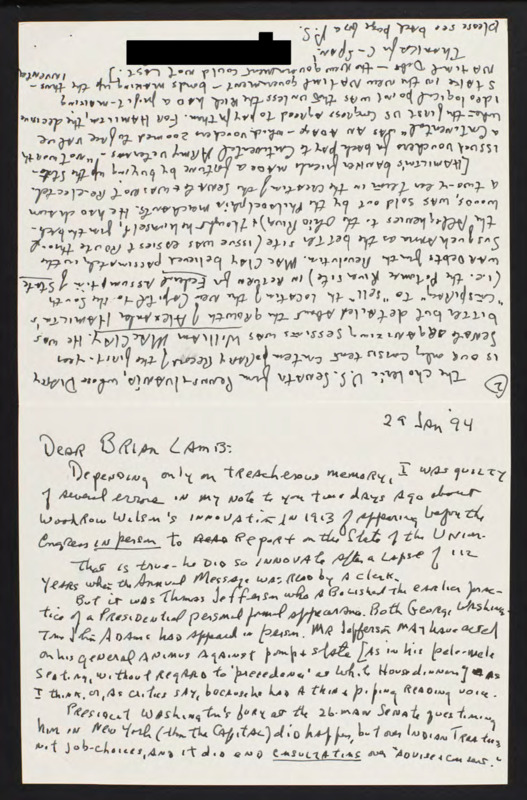 29 Jan '94
Dear Brian Lamb:
Depending only on treacherous memory, I was guilty
of several errors in my note to you two days ago about
Woodrow Wilson's innovation in 1913 of appearing before the
Congress in person to read Report on the State of the Union.
This is true - he did so innovate after a lapse of 112
years when the Annual Message was read by a clerk.
But it was Thomas Jefferson who abolished the earlier prac-
tice of a Presidential personal formal appearance. Both George Washing-
ton & John Adams had appeared in person. Mr Jefferson may have acted
on his general animus against pomp & state [as in his pele-mele
seating, without regard to "precedence" at White House dinners] as
I think, or, as critics say, because he had a thin & piping reading voice.
President Washington's fury at the 26-man Senate questioning
him in New York (then the Capital) did happen, but over Indian Treaties
not job-choices, and it did end consultations over "advise & consent."
②
The choleric U.S. Senator from Pennsylvania, whose Diary
is our only consistent contemporary record of the first-year
Senate organizing sessions was William Maclay. He was
bitter but detailed about the growth of Alexander Hamilton's
"conspiracy" to "sell" the location of the new Capitol to the South
(i.e. the Potomac River site) in return for Federal Assumption of State
war debts from the Revolution. Maclay believed passionately in the
Susquehanna as the better site (issue was easiest route through
the Alleghenies to the Ohio River) & thought he himself, from the back-
woods, was sold out by the Philadelphia merchants. He had drawn
a two-year term in the creating of the Senate & wasn't re-elected.
[Hamilton's banker friends made a fortune by buying up the
issued vouchers in back pay to Continental Army veterans - "not worth
a Continental" was an adage - which vouchers zoomed to face value
when the first US Congress agreed to pay them. For Hamilton the decisive
ideological point was that unless the Rich had a profit-making
stake in the new National government - bonds making up the
National Debt - the new government could not last.]
Thanks for C-Span!
Please see back page for a P.S.